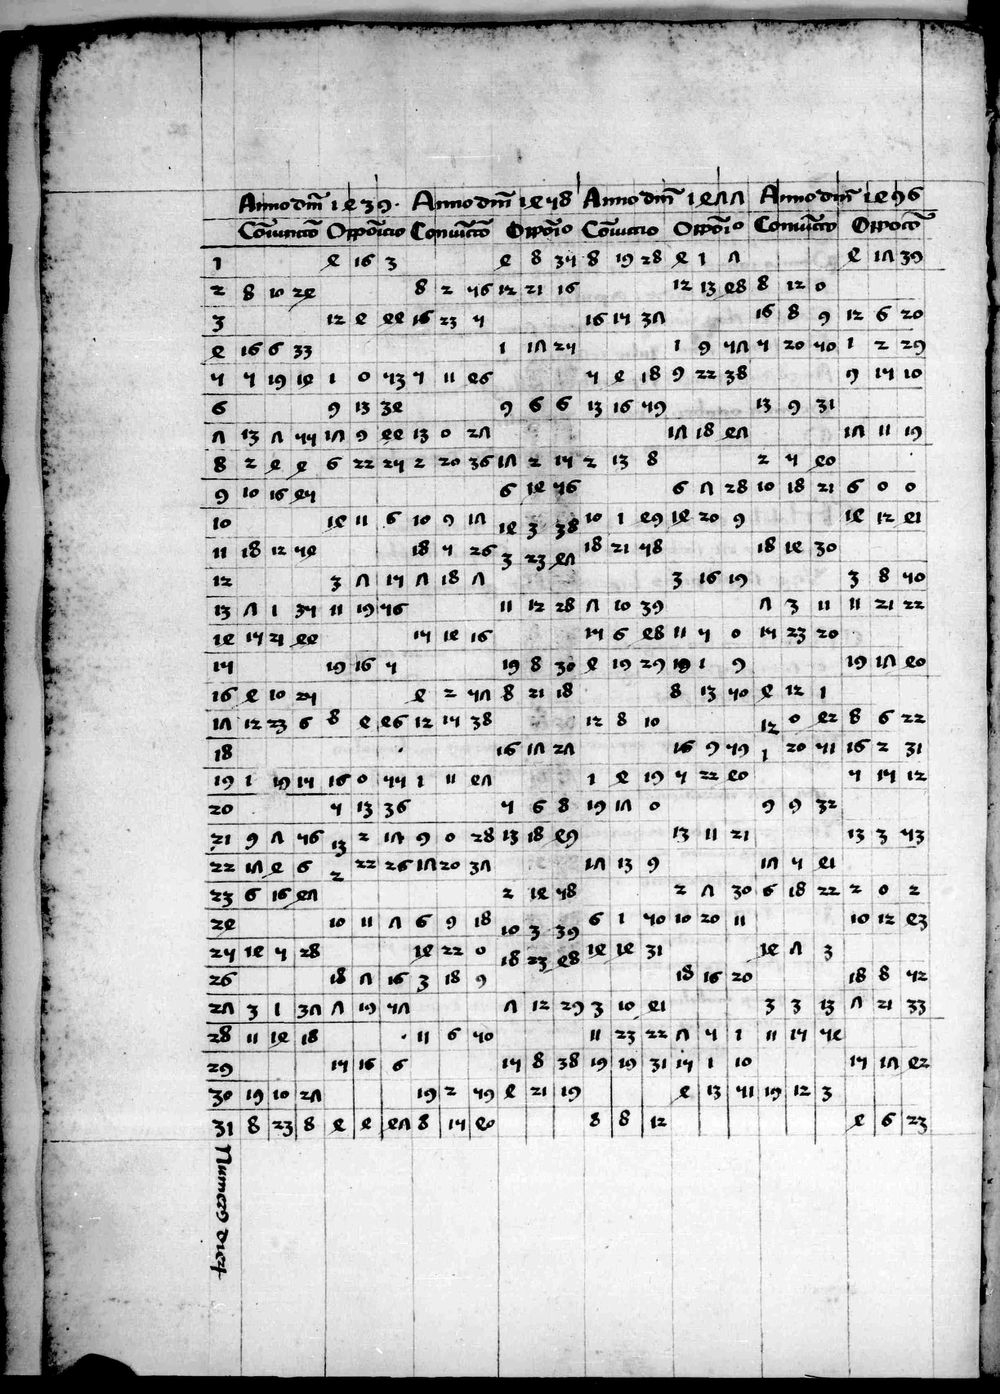 Anno dm̄ 1439. Anno dm̄ 1458 Anno dm̄ 1477 Anno dm̄ 1496
Coniunctio Oppoīcio Coniūctio Oppoīo Coniūctio Oppoīo Coniūctio Oppocio
1 4 16 3 4 8 35 8 19 28 4 1 7 4 17 39
2 8 10 24 8 2 56 12 21 16 12 13 48 8 12 0
3 12 4 44 16 23 5 16 15 37 16 8 9 12 6 20
4 16 6 33 1 17 25 1 9 57 5 20 50 1 2 29
5 5 19 14 1 0 53 5 11 46 5 4 18 9 22 38 9 15 10
6 9 13 34 9 6 6 13 16 59 13 9 31
7 13 7 55 17 9 44 13 0 27 17 18 47 17 11 19
8 2 4 4 6 22 25 2 20 36 17 2 15 2 13 8 2 5 40
9 10 16 45 6 14 56 6 7 28 10 18 21 6 0 0
10 14 11 6 10 9 17 14 3 38 10 1 49 14 20 9 14 12 41
11 18 12 54 18 5 26 3 23 47 18 21 58 18 14 30
12 3 7 15 7 18 7 3 16 19 3 8 50
13 7 1 35 11 19 56 11 12 28 7 10 39 7 3 11 11 21 22
14 15 21 44 15 14 16 15 6 48 11 5 0 15 23 20
15 19 16 5 19 8 30 4 19 29 19 1 9 19 17 40
16 4 10 25 4 2 57 8 21 18 8 13 50 4 12 1
17 12 23 6 8 4 46 12 15 38 12 8 10 12 0 42 8 6 22
18 16 17 27 16 9 59 1 20 51 16 2 31
19 1 19 15 16 0 55 1 11 47 1 4 19 5 22 40 5 15 12
20 5 13 36 5 6 8 19 17 0 9 9 32
21 9 7 56 13 2 17 9 0 28 13 18 49 13 11 21 13 3 53
22 17 4 6 2 22 26 17 20 37 17 13 9 17 5 41
23 6 16 47 2 14 58 2 7 30 6 18 22 2 0 2
24 10 11 7 6 9 18 10 3 39 6 1 50 10 20 11 10 12 43
25 14 5 28 14 22 0 18 23 48 14 14 31 14 7 3
26 18 7 16 3 18 9 18 16 20 18 8 52
27 3 1 37 7 19 57 7 12 29 3 10 41 3 3 13 7 21 33
28 11 14 18 11 6 50 11 23 22 7 5 1 11 15 54
29 15 16 6 15 8 38 19 19 31 15 1 10 15 17 42
30 19 10 27 19 2 59 4 21 19 4 13 51 19 12 3
31 8 23 8 4 4 47 8 15 40 8 8 12 4 6 23
Numerus dieꝝ